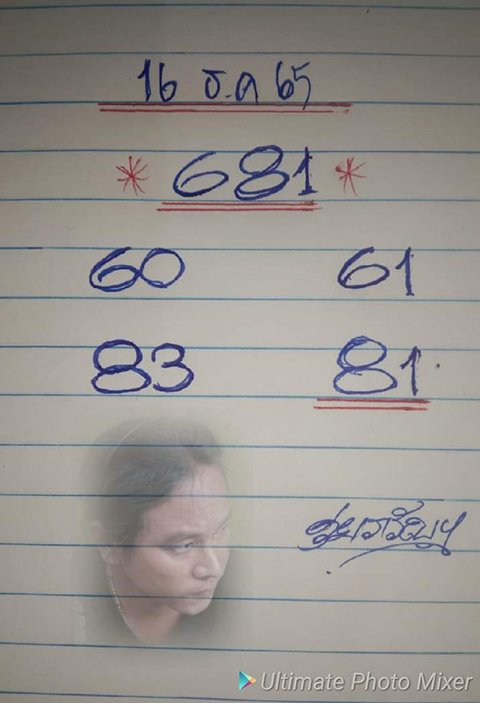 16 ธ.ค 65
* 681 *
60 61
83 81
Ultimate Photo Mixer